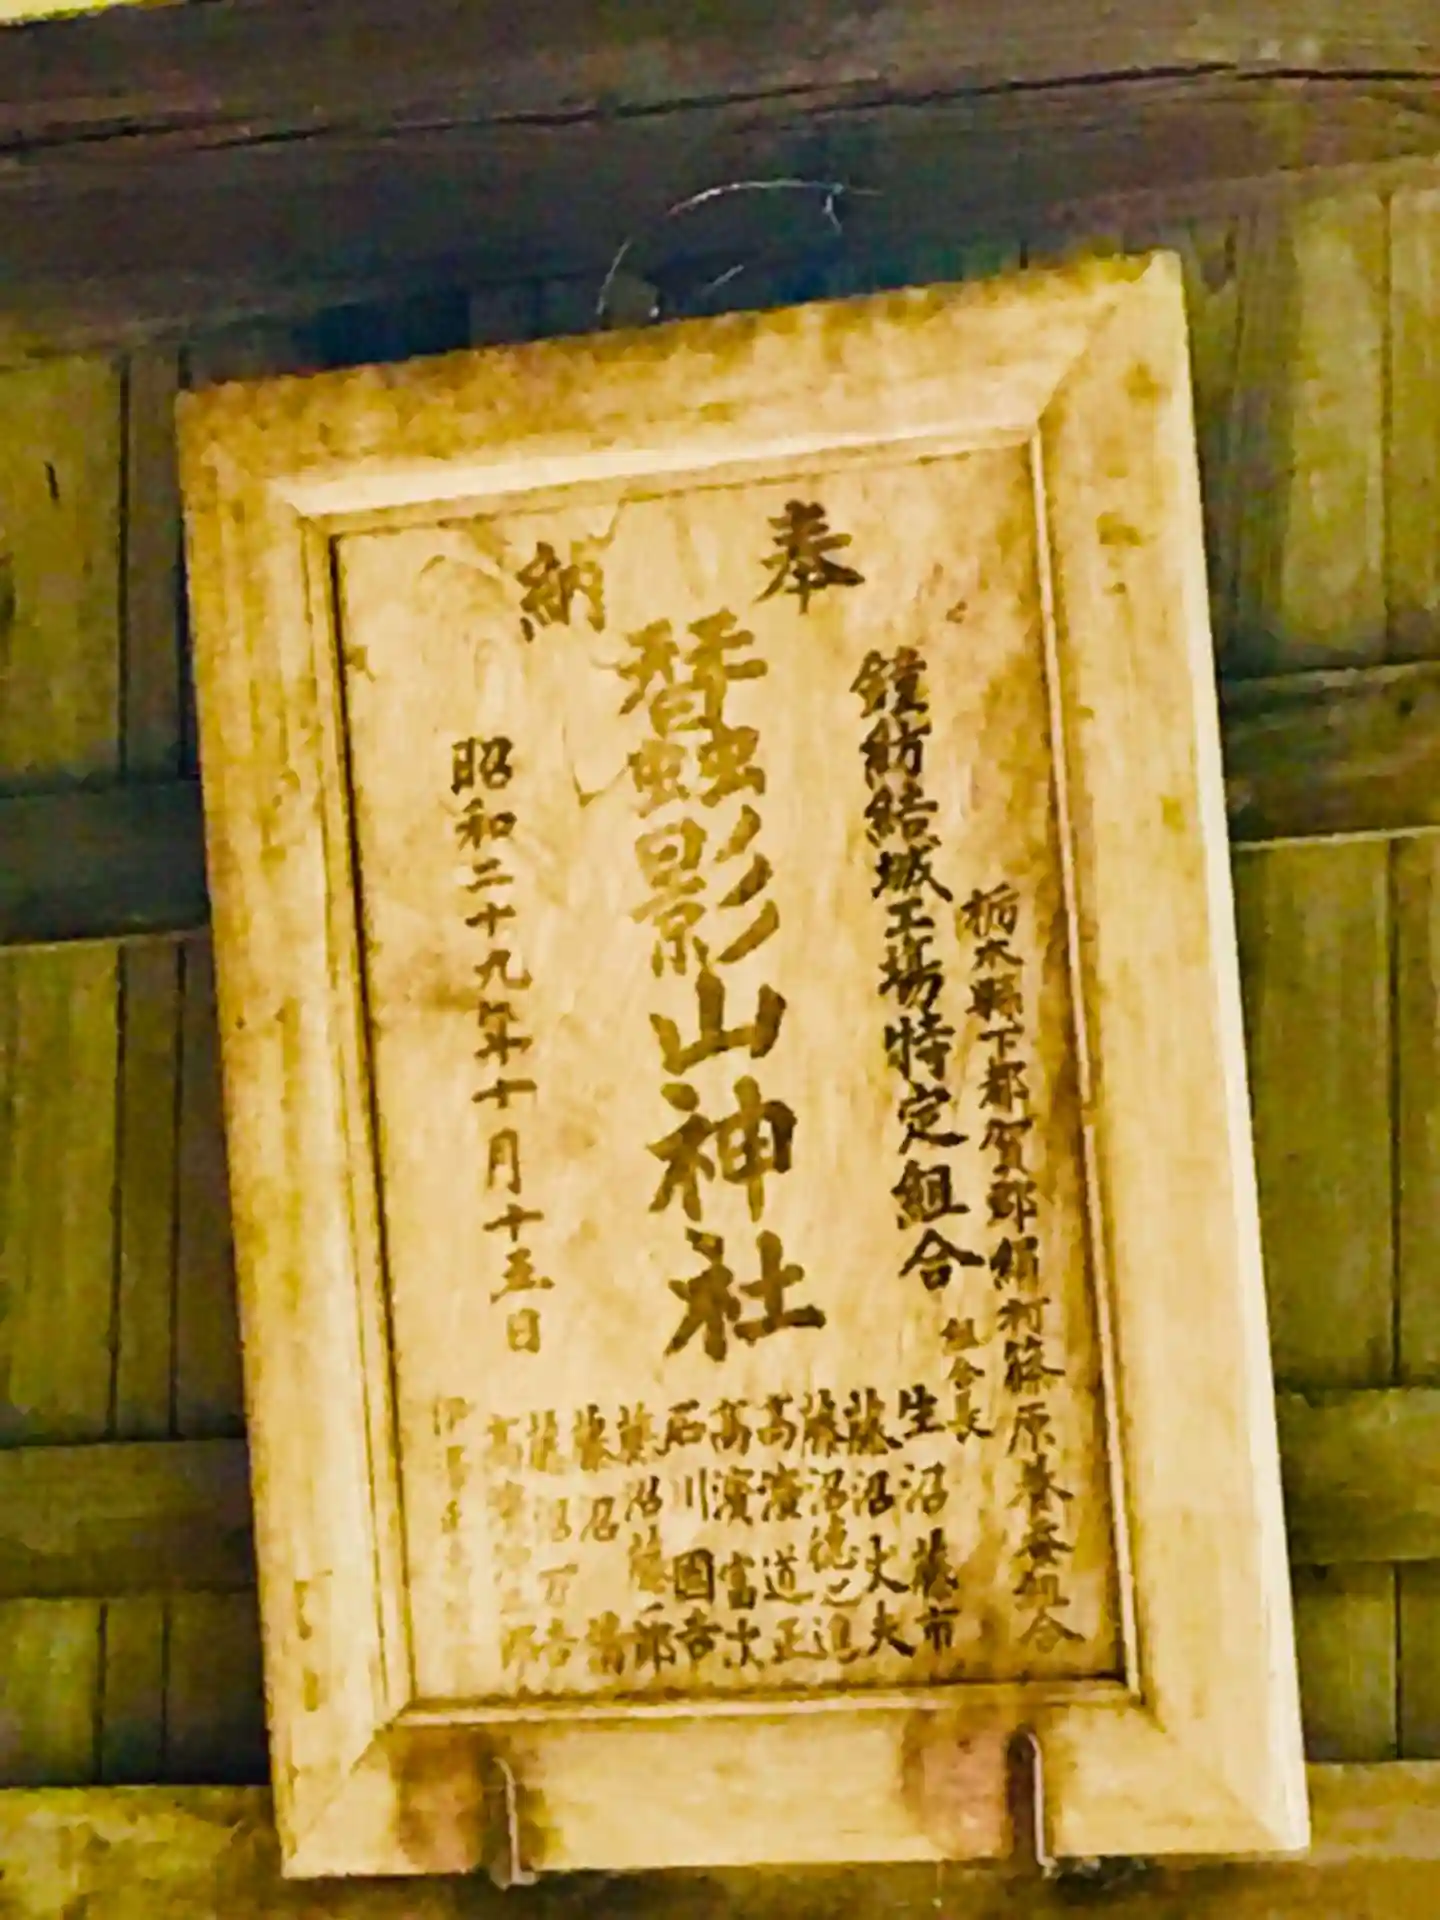 奉納
栃木縣下都賀郡絹村篠原養蚕組合
鐘紡結城工場特定組合
組合長
生沼藤市
藤沼火夫
藤沼徳之進
高濱道正
高濱富次
石川國吉
藤沼藤一郎
藤沼
藤沼万吉
高濱
蠶影山神社
昭和二十九年十月十五日